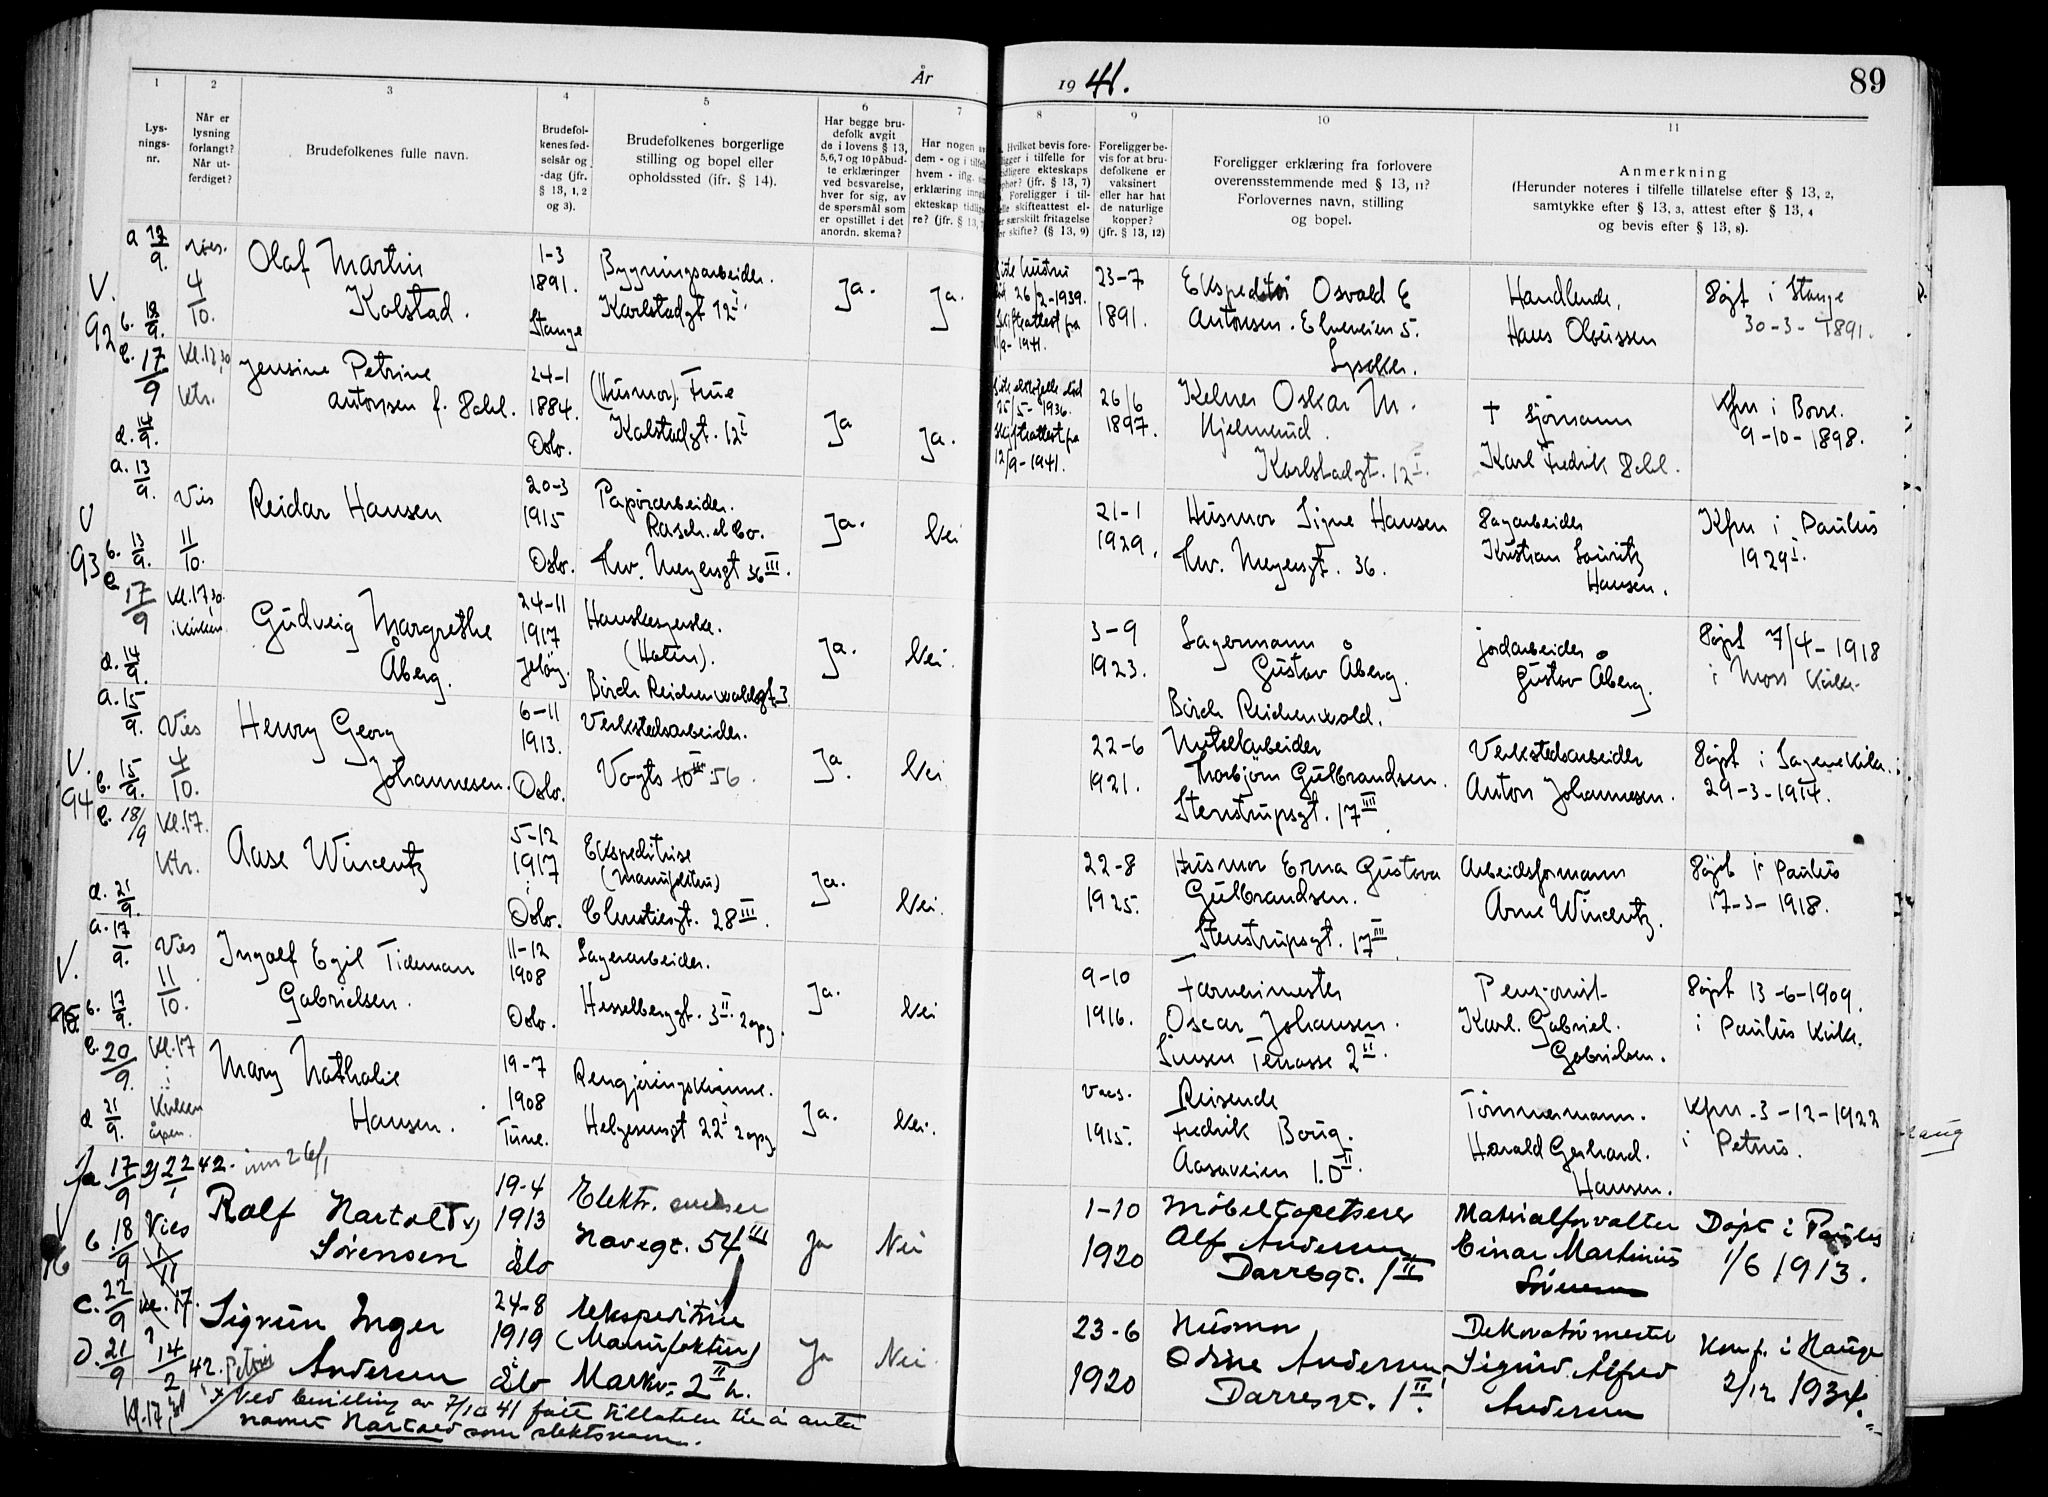 År 1941.
89
1
2
3
4
5
6
7
8
9
10
11
Lys-
nings-
nr.
Når er
lysning
forlangt?
Når ut-
ferdiget?
Brudefolkenes fulle navn.
Brudefol-
kenes fød-
selsår og
-dag (jfr.
§ 13, 1, 2
og 3).
Brudefolkenes borgerlige
stilling og bopel eller
opholdssted (jfr. § 14).
Har begge bru-
defolk avgit
de i lovens § 13,
5,6,7 og 10 påbud-
te erklæringer
ved besvarelse,
hver for sig, av
de spørsmål som
er opstillet i det
anordn. skema?
Har nogen
dem - og i
hvem - iflg.
erklæring
ekteskap
re? (jfr. § 13,
Hvilket bevis fore-
ligger i tilfelle for
ekteskaps
(jfr. § 13, 7)
Foreligger i til-
skifteattest el-
særskilt fritagelse
skifte? (§ 13, 9)
Foreligger be-
vis for at bru-
defolkene er
vaksinert
eller har hat
de naturlige
kopper?
(jfr. § 13, 12)
Foreligger erklæring fra forlovere
overensstemmende med § 13, 11?
Forlovernes navn, stilling
og bopel.
Anmerkning
(Herunder noteres i tilfelle tillatelse efter § 13, 2,
samtykke efter § 13, 3, attest efter § 13, 4
og bevis efter § 13, 8).
V.
92
4/10.
Olaf Martin
Kolstad.
1-3
1891.
Stange
Bygningsarbeider.
Karlstadgt 12 I.
Ja.
Ja.
26/2-1939.
Skifteattest fra
1941.
23-7
1891.
Ekspeditør Osvald E
Antonsen. Elveveien 5.
Lysaker.
Handlende,
Hans Olaussen
Døpt i Stange
30-3-1891.
17/9
Kl. 17,30
Ktr.
Jensine Petrine
Antonsen f. Dahl.
24-1
1884.
Oslo.
(Husmor). Frue
Kalstadgt. 12 I
Ja
Ja.
25/5-1936.
Skifteattest fra
12/9-1941.
26/6
1897.
Kelner Oskar M.
Hjelmeud.
Karlstadgt. 12 I.
+ Sjømann
Karl Fredrik Dahl.
Kfm i Borre.
9-10-1898.
V
93
a. 13/9.
b. 13/9.
Vies
11/10.
Reidar Hansen
20-3
1915
Oslo.
Papirarbeider.
Rasch. & Co.
Thv. Meyersgt 36 III.
Ja.
Nei
21-1
1929.
Husmor Signe Hansen
Thv. Meyersgt. 36.
Sagarbeider
Kristian Lauritz
Hansen.
Kfm i Paulus
1929 I.
17/9
Kl. 17 30.
i kirken.
d. 14/9.
Gudveig Margrethe
Åberg.
24-11
1917
Jeløy.
Hanskesyerske.
Birch Reichenwaldsgt. 3
Ja.
Nei.
3-9
1923.
Lagermann
Gustav Åberg.
Birch Reichenwald.
Jordarbeider
Gustav Åberg.
Døpt 7/4-1918
i Moss Kirke.
V.
94
a. 15/9.
b. 15/9.
Vies
4/10.
Henry Georg
Johannesen.
6-11
1913.
Oslo.
Verkstedsarbeider.
Vogts 56.
Ja.
Nei
22-6
1921.
Thorbjørn Gulbrandsen.
Stenstrupsgt. 17 III.
Verkstedsarbeider
Anton Johannesen.
Døpt i Sagene Kirke.
29-3-1914.
18/9
Kl. 17.
Ktr.
d. 21/9.
Aase Wincentz
5-12
1917
Oslo.
Ekspeditrise
(Manufaktur)
Christiesgt. 28 III.
Ja.
Nei.
22-8
1925.
Husmor Erna Gustava
Gulbrandsen.
Stenstrupsgt. 17 III
Arbeidsformann
Arne Wincentz.
Døpt i Paulus
17-3-1918.
V.
a. 17/9.
b. 17/9.
Vies
11/10.
Ingolf Egil Tideman
Gabrielsen.
11-12
1908
Oslo.
Lagerarbeider.
Hesselberggt. 3 II. 2 opg.
Ja.
Nei
9-10
1916.
Oscar Johansen.
Sinsen Terrasse 2 II.
Pensjonist
Karl. Gabriel.
Gabrielsen.
Døpt 13-6-1909.
i Paulus Kirke.
20/9.
Kl. 17
i
Kirken
åpen.
d 21/9.
Mary Nathalie
Hansen.
19-7
1908
Tune.
Rengjøringskvinne.
Helgesensgt 22 I 2 opg.
Ja.
Nei.
vacs.
1915.
Reisende
Fredrik Boug.
Aasaveien 1.D II.
Tømmermann.
Harald Gerhard.
Hansen.
Kfm. 3-12-1922
i Petrus.
V
96
a 17/9
22/1 42.
b 18/9
Vies
Rolf Hartolt x)
Sørensen
19-4
1913
Oslo
Elektr. sveiser
Havegt. 54 III
Ja
Nei
1-10
1920
Møbeltapetserer
Alf Andersen,
Darresgt. 1 II
Materialforvalter
Einar Martinius
Sørensen
Døpt i Paulus
1/6 1913.
c. 22/9
kl. 17.
d. 21/9
14/2 42. Petrus
Kl. 17
Sigrun Inger
Andersen
24-8
1919
Oslo
Ekspeditrise
(Manufaktur)
Markv. 2 II h.
Ja
Nei.
23-6
1920
Husmor
Odine Andersen
Darresgt. 1 II.
Dekoratørmester
Sigurd Alfred
Andersen
Konf. i Hauge
2/12 1934.
x Ved bevilling av 7/10 41 fått tillatelse til å anta
navnet Hartold som slektsnavn.